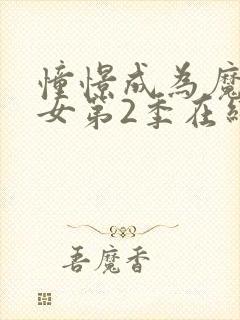 憧憬成為魔
女第2季在
吾魔香